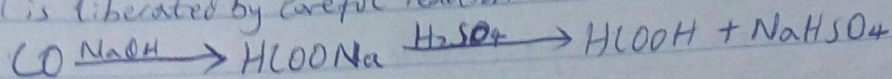 is liberated by careful
CO NaOH → HCOONa H2SO4 → HCOOH + NaHSO4